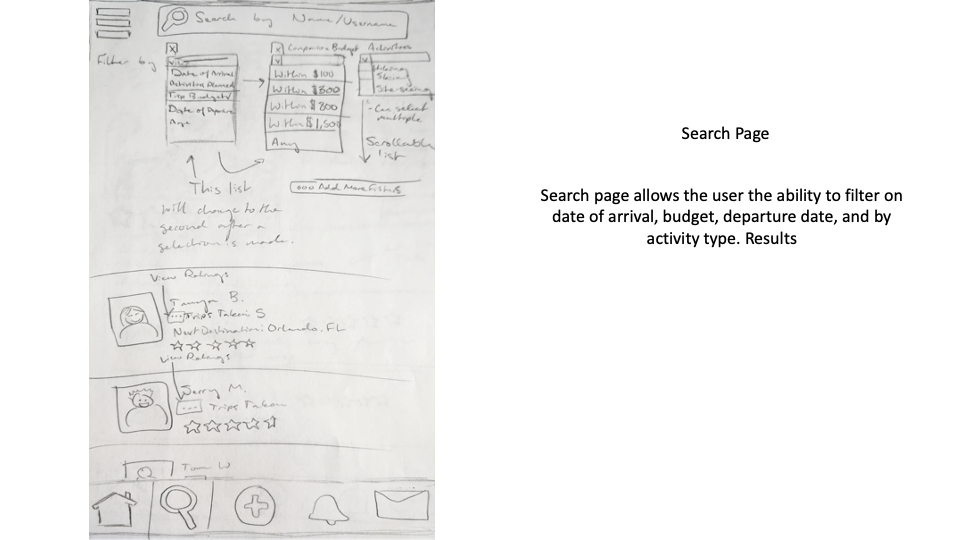 Search by Name/Username
Filter by
X
X
Companion Budget
Activities
Date of Arrival
Activities Planned
Trip Budget
Date of Departure
Age
Within $100
Within $300
Within $800
Within $1,500
Any
Site-seeing
- Can select
multiple
Scrollable
list
This list
will change to the
second after a
selection is made.
ooo Add More Filters
View Ratings
B.
... Trips Taken: 5
Next Destination: Orlando, FL
View Ratings
Jerry M.
... Trips Taken
W
Search Page
Search page allows the user the ability to filter on
date of arrival, budget, departure date, and by
activity type. Results